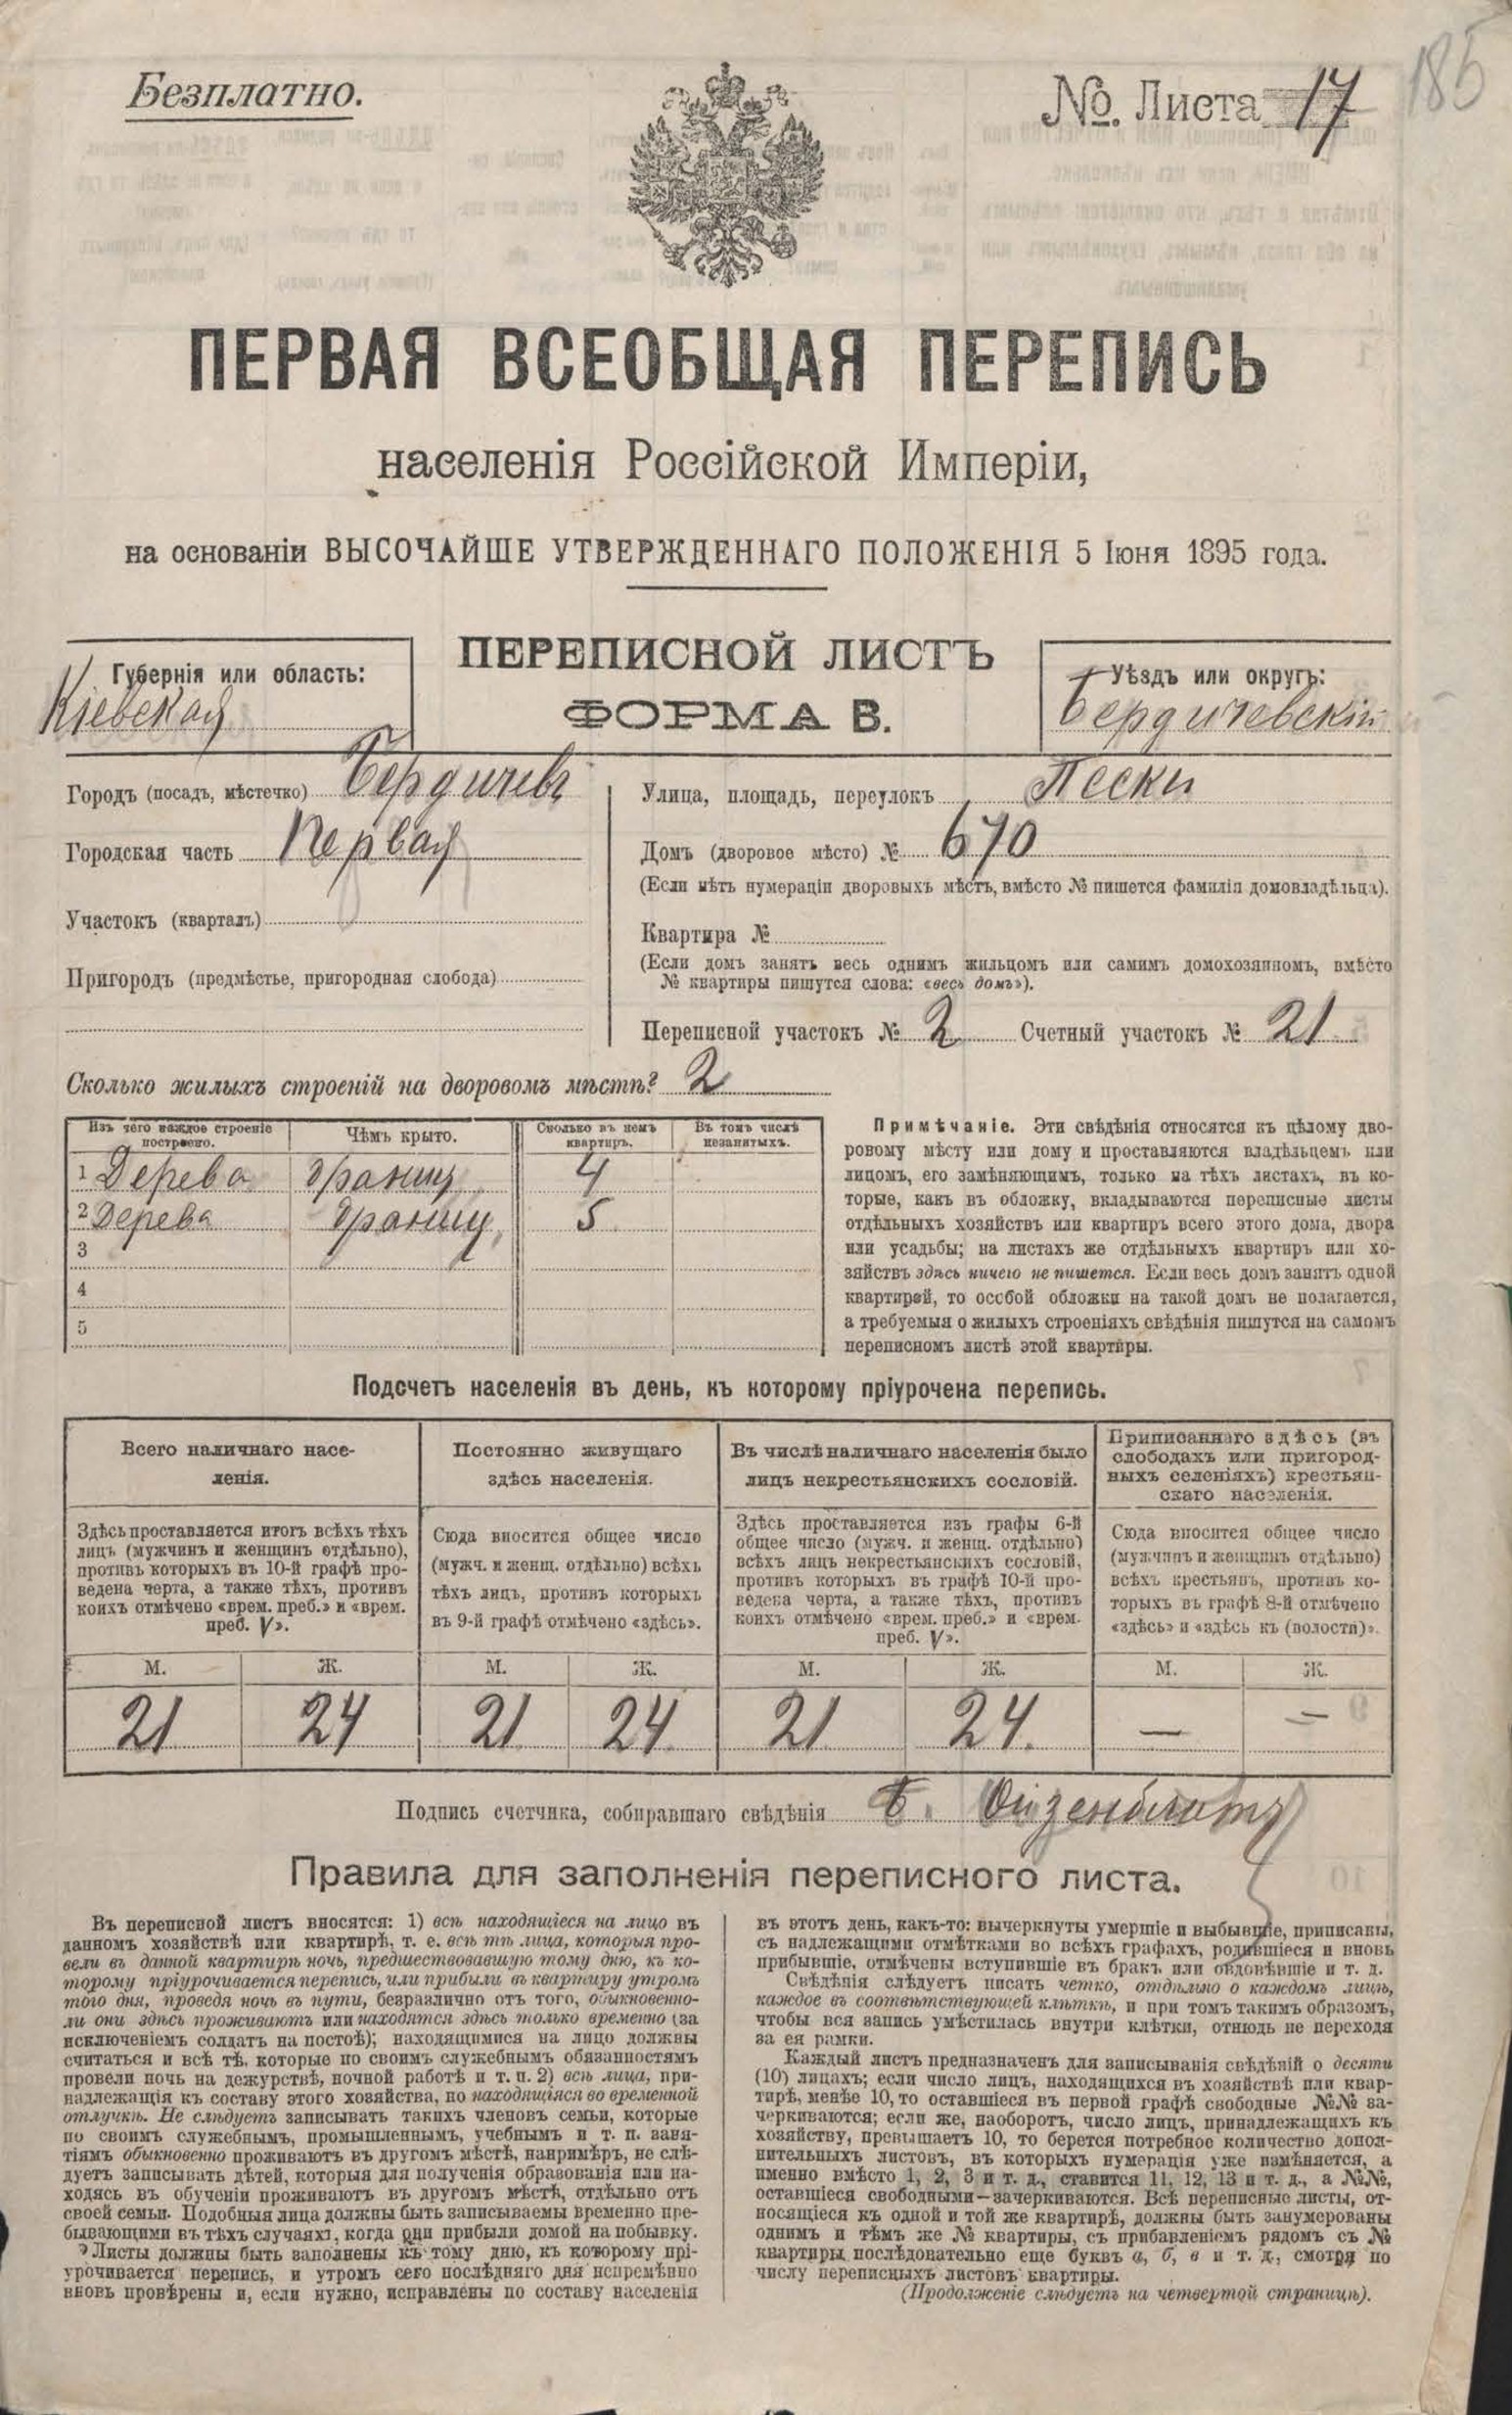 185
Безплатно.
№. Листа 17
ПЕРВАЯ ВСЕОБЩАЯ ПЕРЕПИСЬ
населенія Россійской Имперіи,
на основаніи ВЫСОЧАЙШЕ УТВЕРЖДЕННАГО ПОЛОЖЕНІЯ 5 Іюня 1895 года.
ПЕРЕПИСНОЙ ЛИСТЪ
ФОРМА В.
Губернія или область:
Кіевская
Уѣздъ или округъ:
Бердичевскій
Городъ (посадъ, мѣстечко) Бердичевъ
Городская часть Первая
Участокъ (кварталъ)
Пригородъ (предмѣстье, пригородная слобода)
Улица, площадь, переулокъ Пески
Домъ (дворовое мѣсто) № 670
(Если нѣтъ нумераціи дворовыхъ мѣстъ, вмѣсто № пишется фамилія домовладѣльца).
Квартира №
(Если домъ занятъ весь однимъ жильцомъ или самимъ домохозяиномъ, вмѣсто
№ квартиры пишутся слова: «весь домъ»).
Переписной участокъ № 2 Счетный участокъ № 21
Сколько жилыхъ строеній на дворовомъ мѣстѣ? 2
Изъ чего каждое строеніе построено. Чѣмъ крыто. Сколько въ немъ квартиръ. Въ томъ числѣ незанятыхъ.
1 Дерева 4
2 Дерева 5
3
4
5
Примѣчаніе. Эти свѣдѣнія относятся къ цѣлому дво-
ровому мѣсту или дому и проставляются владѣльцемъ или
лицомъ, его замѣняющимъ, только на тѣхъ листахъ, въ ко-
торые, какъ въ обложку, вкладываются переписные листы
отдѣльныхъ хозяйствъ или квартиръ всего этого дома, двора
или усадьбы; на листахъ же отдѣльныхъ квартиръ или хо-
зяйствъ здѣсь ничего не пишется. Если весь домъ занятъ одной
квартирой, то особой обложки на такой домъ не полагается,
а требуемыя о жилыхъ строеніяхъ свѣдѣнія пишутся на самомъ
переписномъ листѣ этой квартиры.
Подсчетъ населенія въ день, къ которому пріурочена перепись.
Всего наличнаго насе-
ленія.
Здѣсь проставляется итогъ всѣхъ тѣхъ
лицъ (мужчинъ и женщинъ отдѣльно),
противъ которыхъ въ 10-й графѣ про-
ведена черта, а также тѣхъ, противъ
коихъ отмѣчено «врем. преб.» и «врем.
преб. V».
Постоянно живущаго
здѣсь населенія.
Сюда вносится общее число
(мужч. и женщ. отдѣльно) всѣхъ
тѣхъ лицъ, противъ которыхъ
въ 9-й графѣ отмѣчено «здѣсь».
Въ числѣ наличнаго населенія было
лицъ некрестьянскихъ сословій.
Здѣсь проставляется изъ графы 6-й
общее число (мужч. и женщ. отдѣльно)
всѣхъ лицъ некрестьянскихъ сословій,
противъ которыхъ въ графѣ 10-й про-
ведена черта, а также тѣхъ, противъ
коихъ отмѣчено «врем. преб.» и «врем.
преб. V».
Приписаннаго здѣсь (въ
слободахъ или пригород-
ныхъ селеніяхъ) крестьян-
скаго населенія.
Сюда вносится общее число
(мужчинъ и женщинъ отдѣльно)
всѣхъ крестьянъ, противъ ко-
торыхъ въ графѣ 8-й отмѣчено
«здѣсь» и «здѣсь къ (волости)».
М. Ж. М. Ж. М. Ж. М. Ж.
21 24 21 24 21 24 — —
Подпись счетчика, собиравшаго свѣдѣнія Ойзенблатъ
Правила для заполненія переписного листа.
Въ переписной листъ вносятся: 1) всѣ находящіеся на лицо въ
данномъ хозяйствѣ или квартирѣ, т. е. всѣ тѣ лица, которыя про-
вели въ данной квартирѣ ночь, предшествовавшую тому дню, къ ко-
торому пріурочивается перепись, или прибыли въ квартиру утромъ
того дня, проведя ночь въ пути, безразлично отъ того, обыкновенно-
ли они здѣсь проживаютъ или находятся здѣсь только временно (за
исключеніемъ солдатъ на постоѣ); находящимися на лицо должны
считаться и всѣ тѣ, которые по своимъ служебнымъ обязанностямъ
провели ночь на дежурствѣ, ночной работѣ и т. п. 2) всѣ лица, при-
надлежащія къ составу этого хозяйства, но находящіяся во временной
отлучкѣ. Не слѣдуетъ записывать такихъ членовъ семьи, которые
по своимъ служебнымъ, промышленнымъ, учебнымъ и т. п. заня-
тіямъ обыкновенно проживаютъ въ другомъ мѣстѣ, напримѣръ, не слѣ-
дуетъ записывать дѣтей, которыя для полученія образованія или на-
ходясь въ обученіи проживаютъ въ другомъ мѣстѣ, отдѣльно отъ
своей семьи. Подобныя лица должны быть записываемы временно пре-
бывающими въ тѣхъ случаяхъ, когда они прибыли домой на побывку.
Листы должны быть заполнены къ тому дню, къ которому прі-
урочивается перепись, и утромъ сего послѣдняго дня непремѣнно
вновь провѣрены и, если нужно, исправлены по составу населенія
въ этотъ день, какъ-то: вычеркнуты умершіе и выбывшіе, приписаны,
съ надлежащими отмѣтками во всѣхъ графахъ, родившіеся и вновь
прибывшіе, отмѣчены вступившіе въ бракъ или овдовѣвшіе и т. д.
Свѣдѣнія слѣдуетъ писать четко, отдѣльно о каждомъ лицѣ,
каждое въ соотвѣтствующей клѣткѣ, и при томъ такимъ образомъ,
чтобы вся запись умѣстилась внутри клѣтки, отнюдь не переходя
за ея рамки.
Каждый листъ предназначенъ для записыванія свѣдѣній о десяти
(10) лицахъ; если число лицъ, находящихся въ хозяйствѣ или квар-
тирѣ, менѣе 10, то оставшіеся въ первой графѣ свободные №№ за-
черкиваются; если же, наоборотъ, число лицъ, принадлежащихъ къ
хозяйству, превышаетъ 10, то берется потребное количество допол-
нительныхъ листовъ, въ которыхъ нумерація уже измѣняется, а
именно вмѣсто 1, 2, 3 и т. д., ставится 11, 12, 13 и т. д., а №№,
оставшіеся свободными—зачеркиваются. Всѣ переписные листы, от-
носящіеся къ одной и той же квартирѣ, должны быть занумерованы
однимъ и тѣмъ же № квартиры, съ прибавленіемъ рядомъ съ №
квартиры послѣдовательно еще буквъ а, б, в и т. д., смотря по
числу переписныхъ листовъ квартиры.
(Продолженіе слѣдуетъ на четвертой страницѣ).